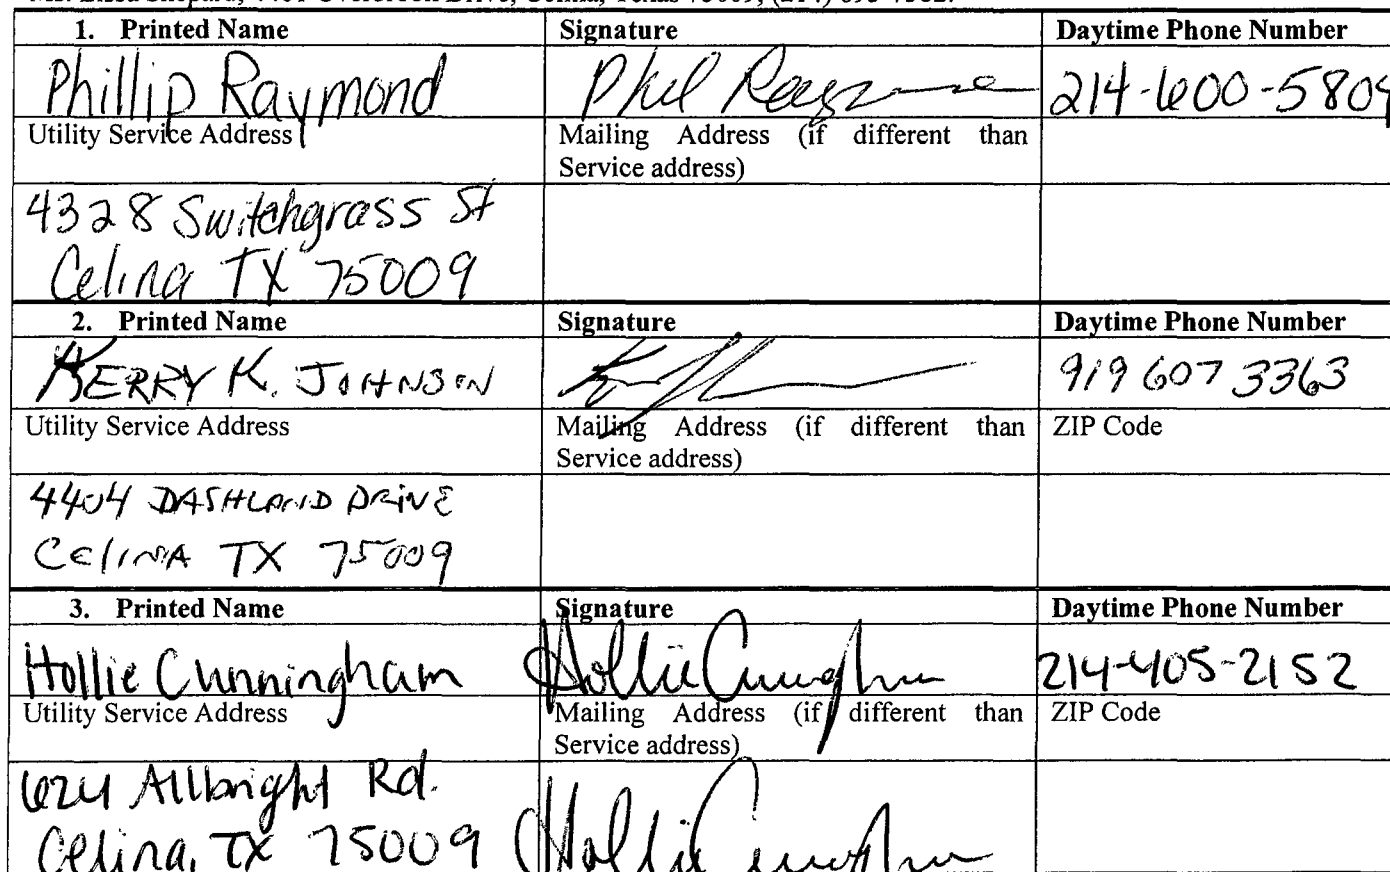 1. Printed Name Signature Daytime Phone Number
Phillip Raymond Phil Raymond 214-600-5809
Utility Service Address Mailing Address (if different than
Service address)
4328 Switchgrass St
Celina TX 75009
2. Printed Name Signature Daytime Phone Number
KERRY K. JOHNSON 919 607 3363
Utility Service Address Mailing Address (if different than ZIP Code
Service address)
4404 DASHLAND DRIVE
CELINA TX 75009
3. Printed Name Signature Daytime Phone Number
Hollie Cunningham Hollie Cunningham 214-405-2152
Utility Service Address Mailing Address (if different than ZIP Code
Service address)
624 Allbright Rd.
Celina, TX 75009 Hollie Cunningham